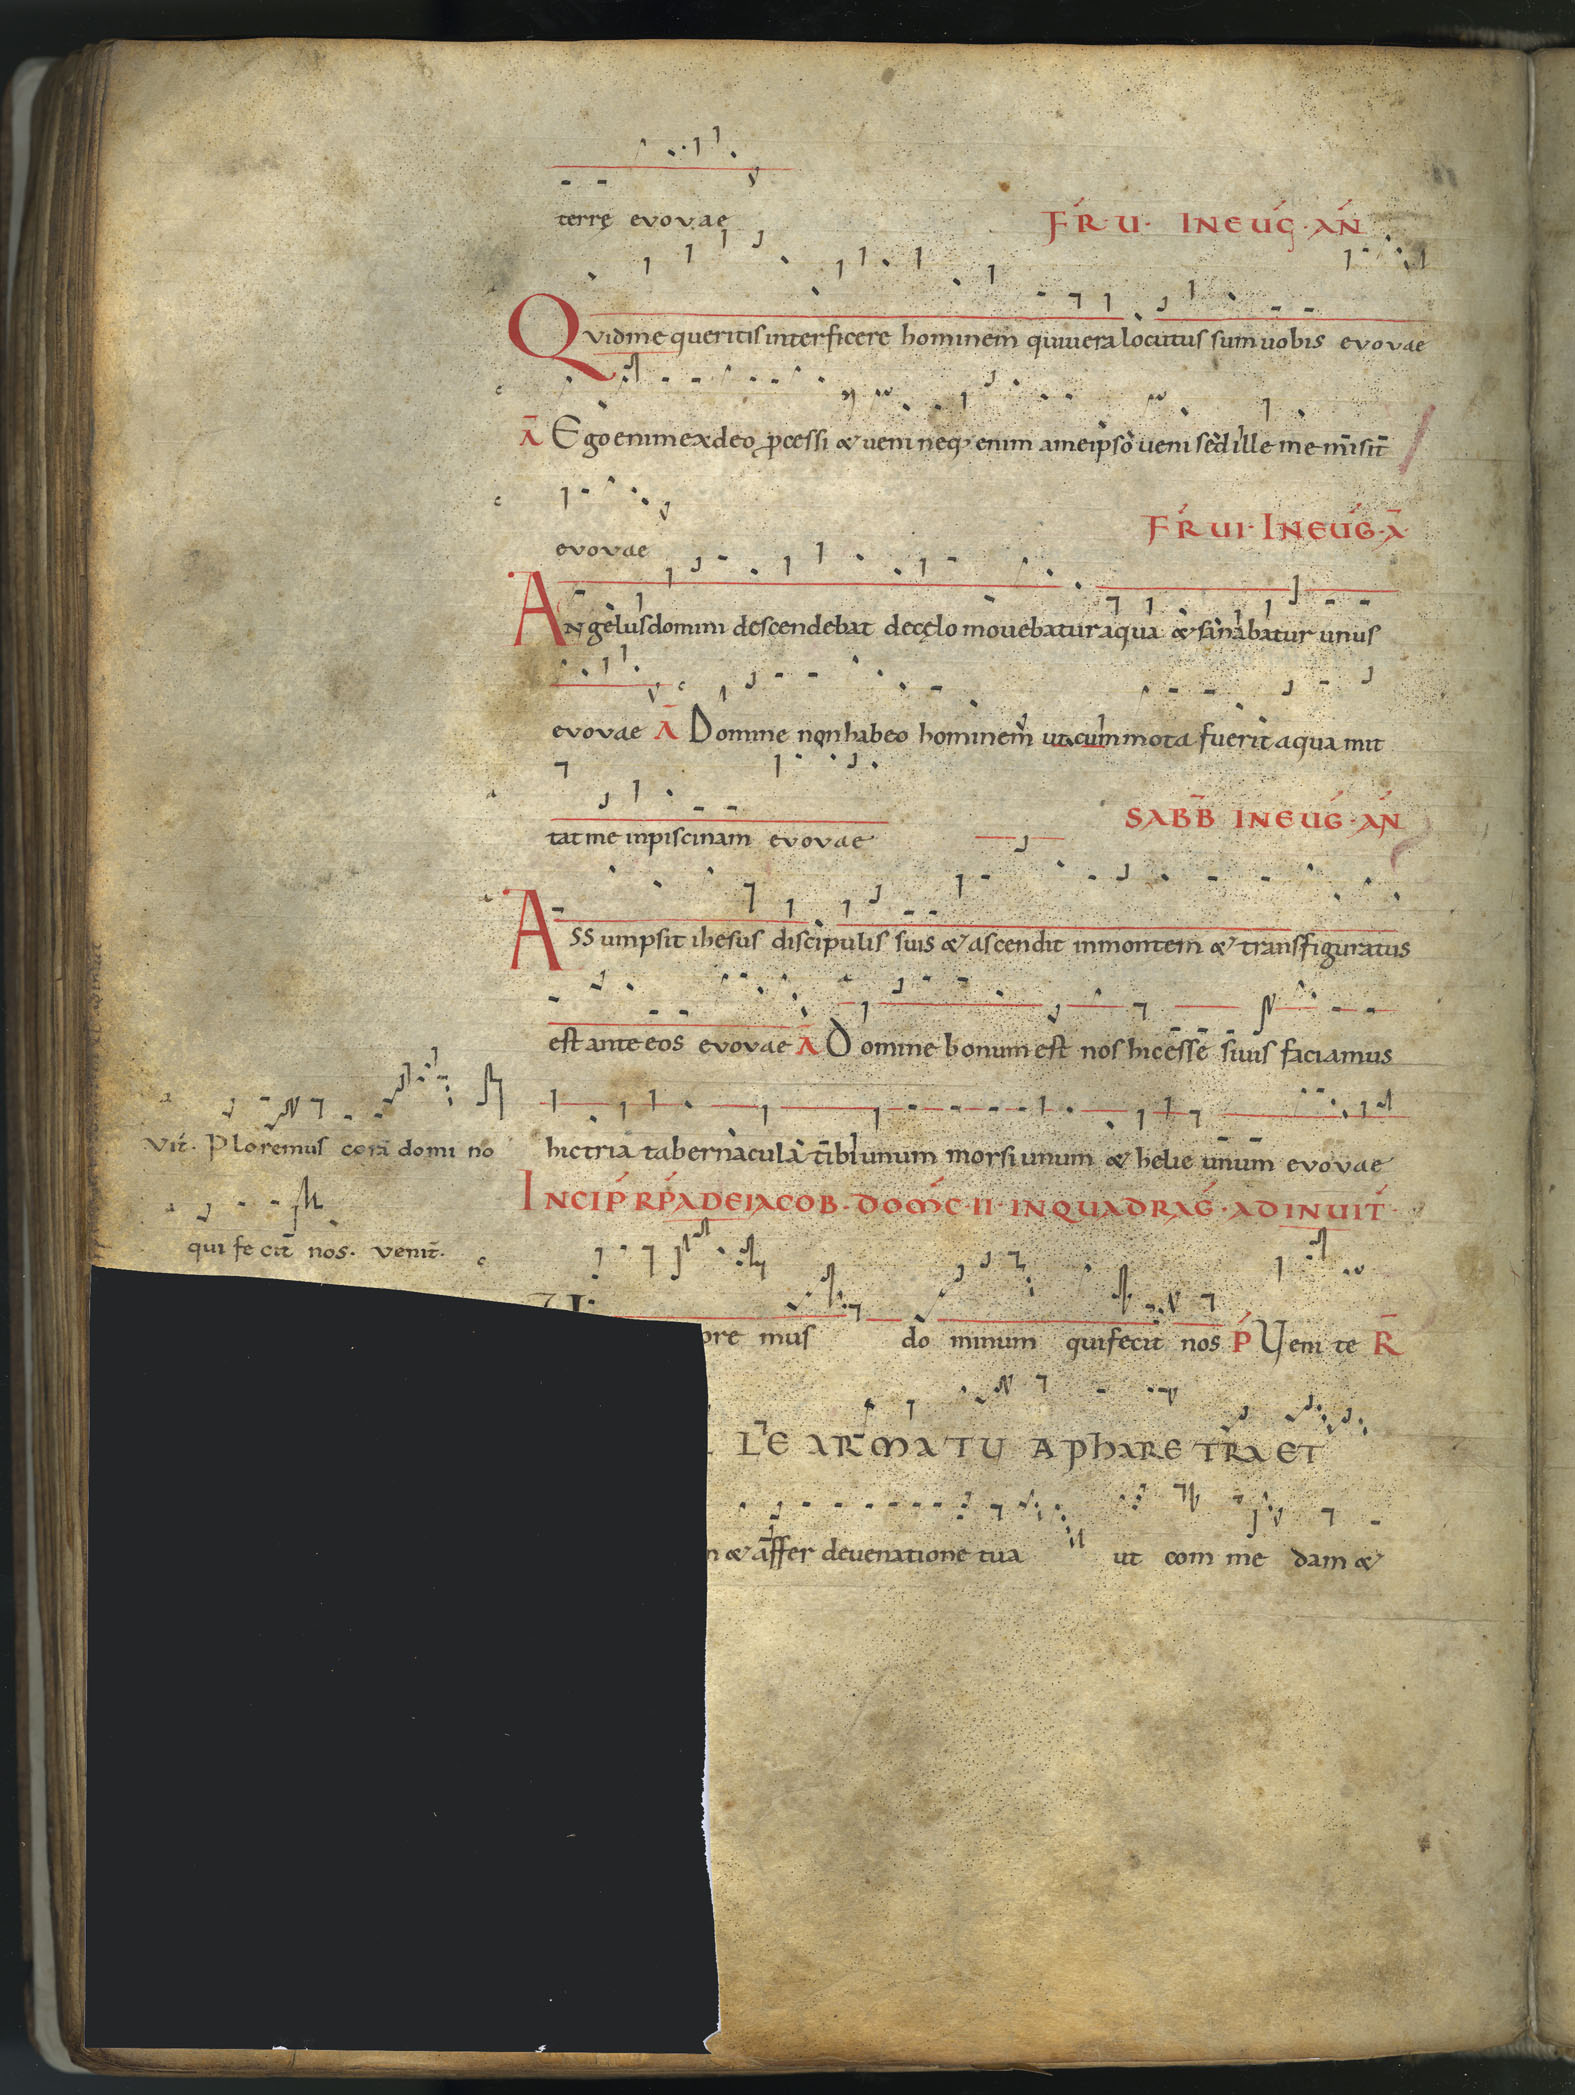 terrę evovae
FR·U· IN EUG·AN
Quid me queritis interficere hominem qui uera locutus sum uobis evovae
A Ego enim ex deo pcessi & veni neq; enim a me ipso veni sed ille me misit
evovae
FR UI· IN EUG·A
Angelus domini descendebat de cęlo movebatur aqua & sanabatur unus
evovae A Domine non habeo hominem ut cum mota fuerit aqua mit
tat me in piscinam evovae
SABB IN EUG·AN
Assumpsit ihesus discipulis suis & ascendit in montem & transfiguratus
est ante eos evovae A Domine bonum est nos hic esse si uis faciamus
Vit. Ploremus corā domino
hic tria tabernacula tibi unum morsi unum & helie unum evovae
INCIP RP A DE IACOB·DOMC·II·IN QUADRAG·AD INUIT
qui fecit nos. venit.
ore mus do minum qui fecit nos P Veni te R
LE ARMA TU A PHARE TRA ET
& affer de venatione tua ut com me dam &